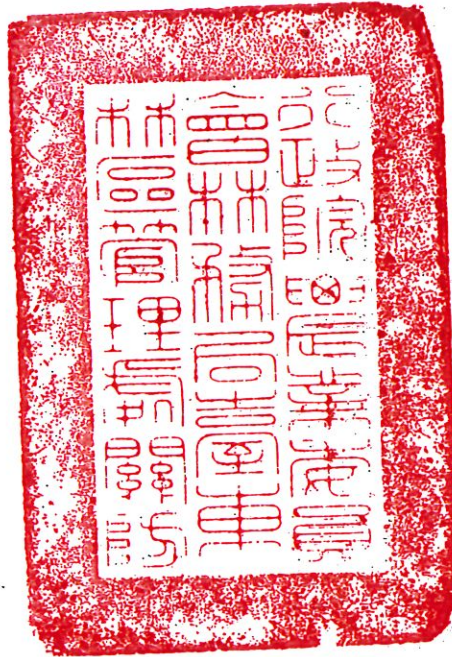 行政院農業委員
會林務局臺東
林區管理處關防